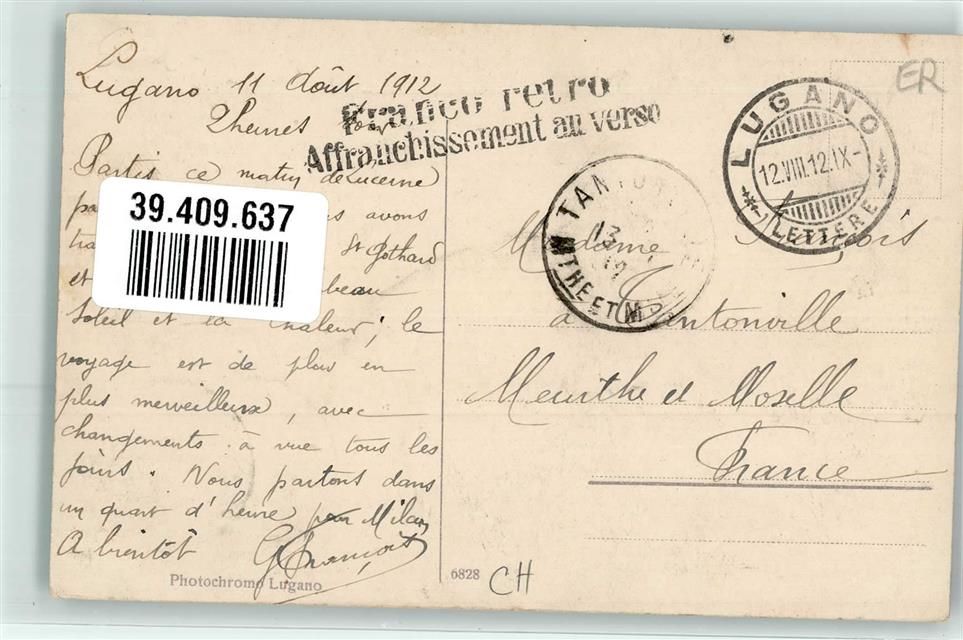 Lugano 11 Août 1912
2 heures Soir
Partis ce matin de Lucerne
avons
St Gothard
et beau
Soleil et la chaleur, le
voyage est de plus en
plus merveilleux, avec
changements à vue tous les
jours. Nous partons dans
un quart d'heure pour Milan
A bientôt G François
Photochromo Lugano
6828
CH
39.409.637
Franco retro
Affranchissement au verso
LUGANO
12.VIII.12.IX-
LETTERE
13
MTHE ET M
ER
Madame François
à Tantonville
Meurthe et Moselle
France